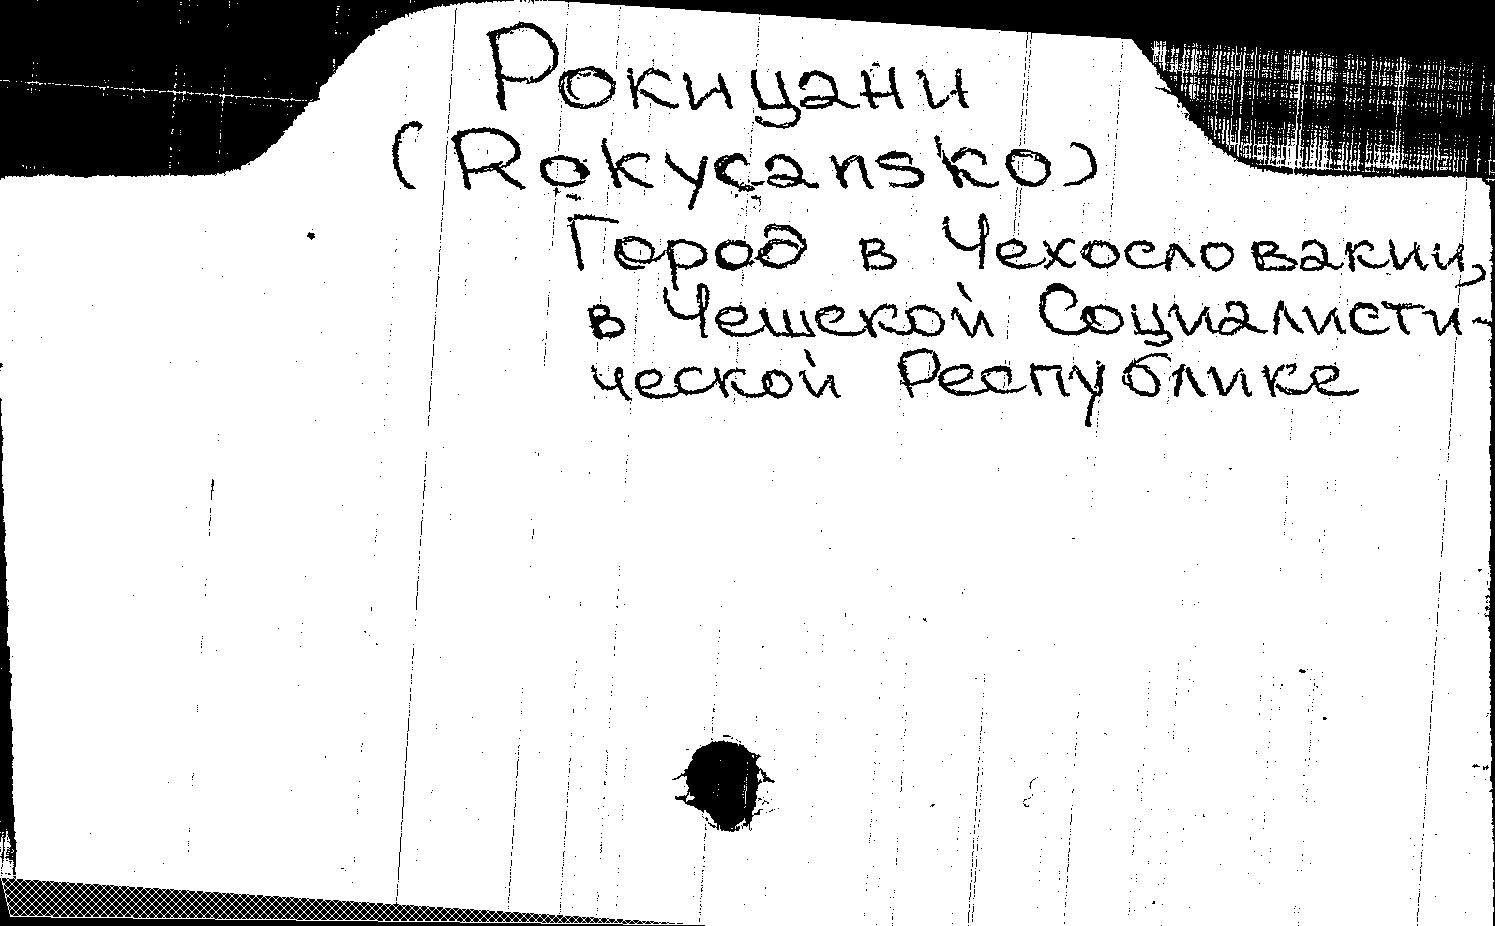 Рокицани
(Rokycansko)
Город в Чехословакии,
в Чешской Социалисти-
ческой Республике